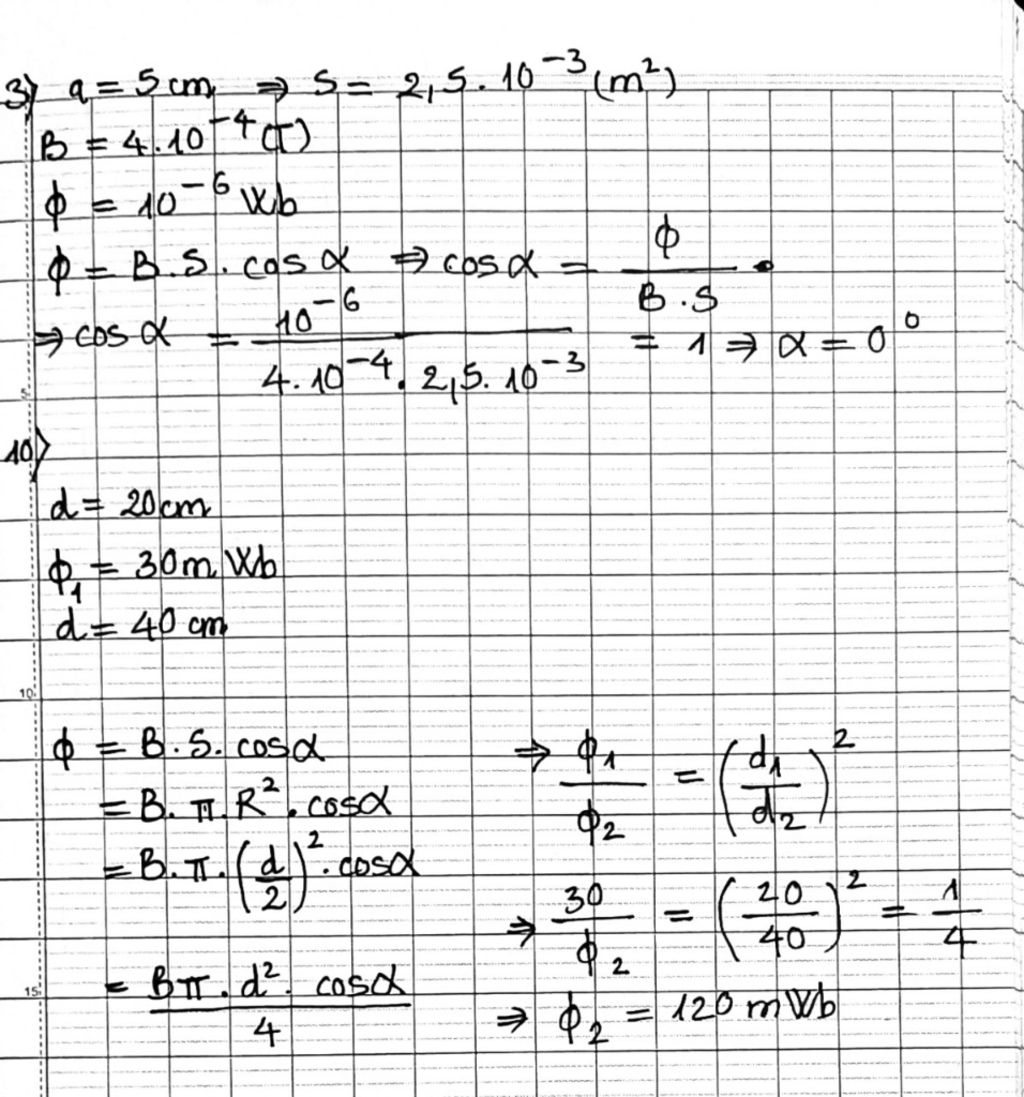 3) a = 5 cm ⇒ S = 2,5. 10⁻³ (m²)
B = 4.10⁻⁴ (T)
ϕ = 10⁻⁶ Wb
ϕ = B.S. cos α ⇒ cos α = ϕ / B.S .
⇒ cos α = 10⁻⁶ / 4.10⁻⁴. 2,5. 10⁻³ = 1 ⇒ α = 0°
10)
d = 20 cm
ϕ₁ = 30 m Wb
d = 40 cm
10
ϕ = B.S. cos α
= B. π. R². cos α
= B.π. (d/2)². cos α
15
= Bπ. d². cos α / 4
⇒ ϕ₁ / ϕ₂ = (d₁ / d₂)²
⇒ 30 / ϕ₂ = (20 / 40)² = 1 / 4
⇒ ϕ₂ = 120 m Wb